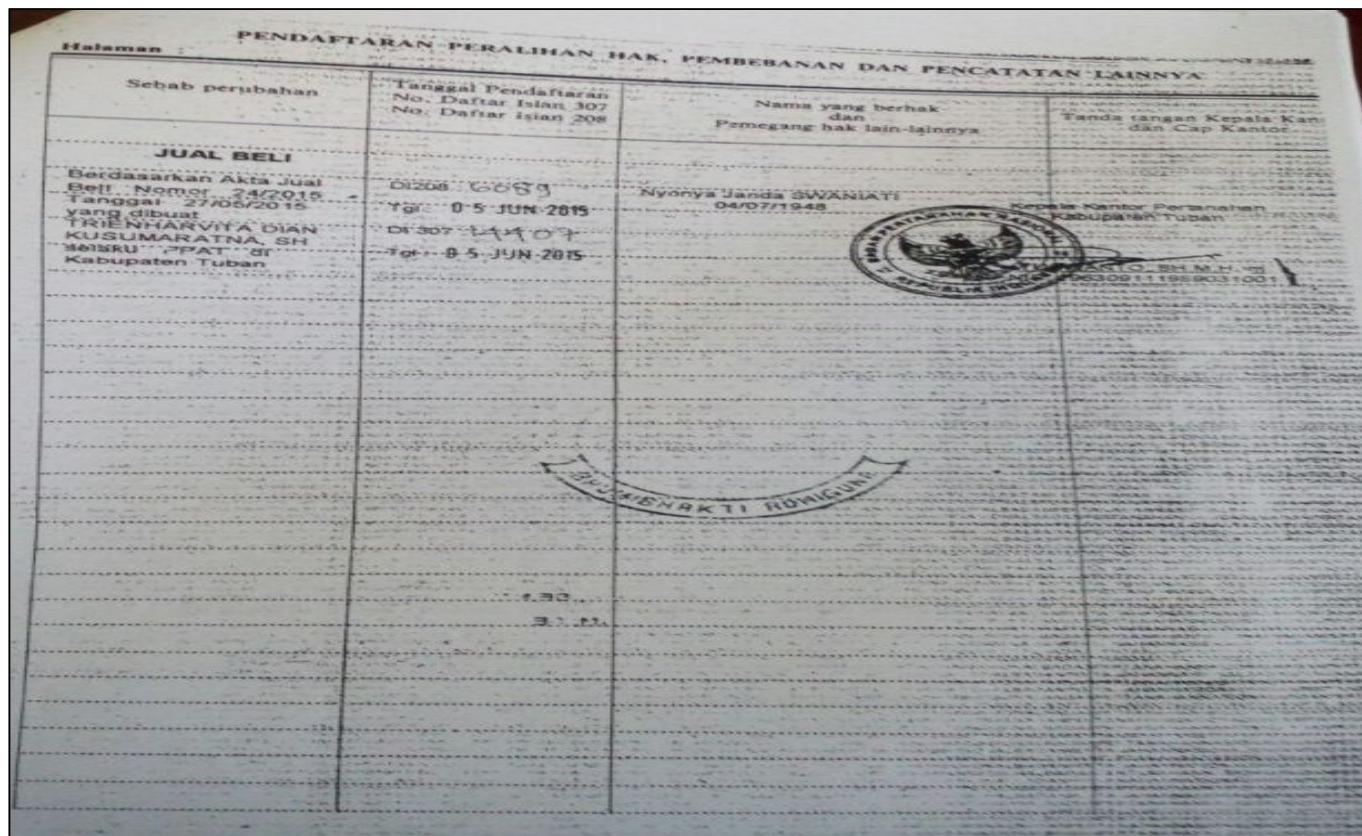 PENDAFTARAN PERALIHAN HAK, PEMBEBANAN DAN PENCATATAN LAINNYA
Halaman :
Sebab perubahan
Tanggal Pendaftaran
No. Daftar Isian 307
No. Daftar Isian 208
Nama yang berhak
dan
Pemegang hak lain-lainnya
Tanda tangan Kepala Kan
dan Cap Kantor
JUAL BELI
Berdasarkan Akta Jual
Beli Nomor 24/2015
Tanggal 27/05/2015
yang dibuat
TRIENHARVITA DIAN
KUSUMARATNA, SH
PPAT di
Kabupaten Tuban
DI208 : 6089
Tgl : 05 JUN 2015
DI 307
Tgl : 05 JUN 2015
Nyonya Janda SWANIATI
04/07/1948
Kepala Kantor Pertanahan
Kabupaten Tuban
BADAN PERTANAHAN NASIONAL
REPUBLIK INDONESIA
SH.M.H.